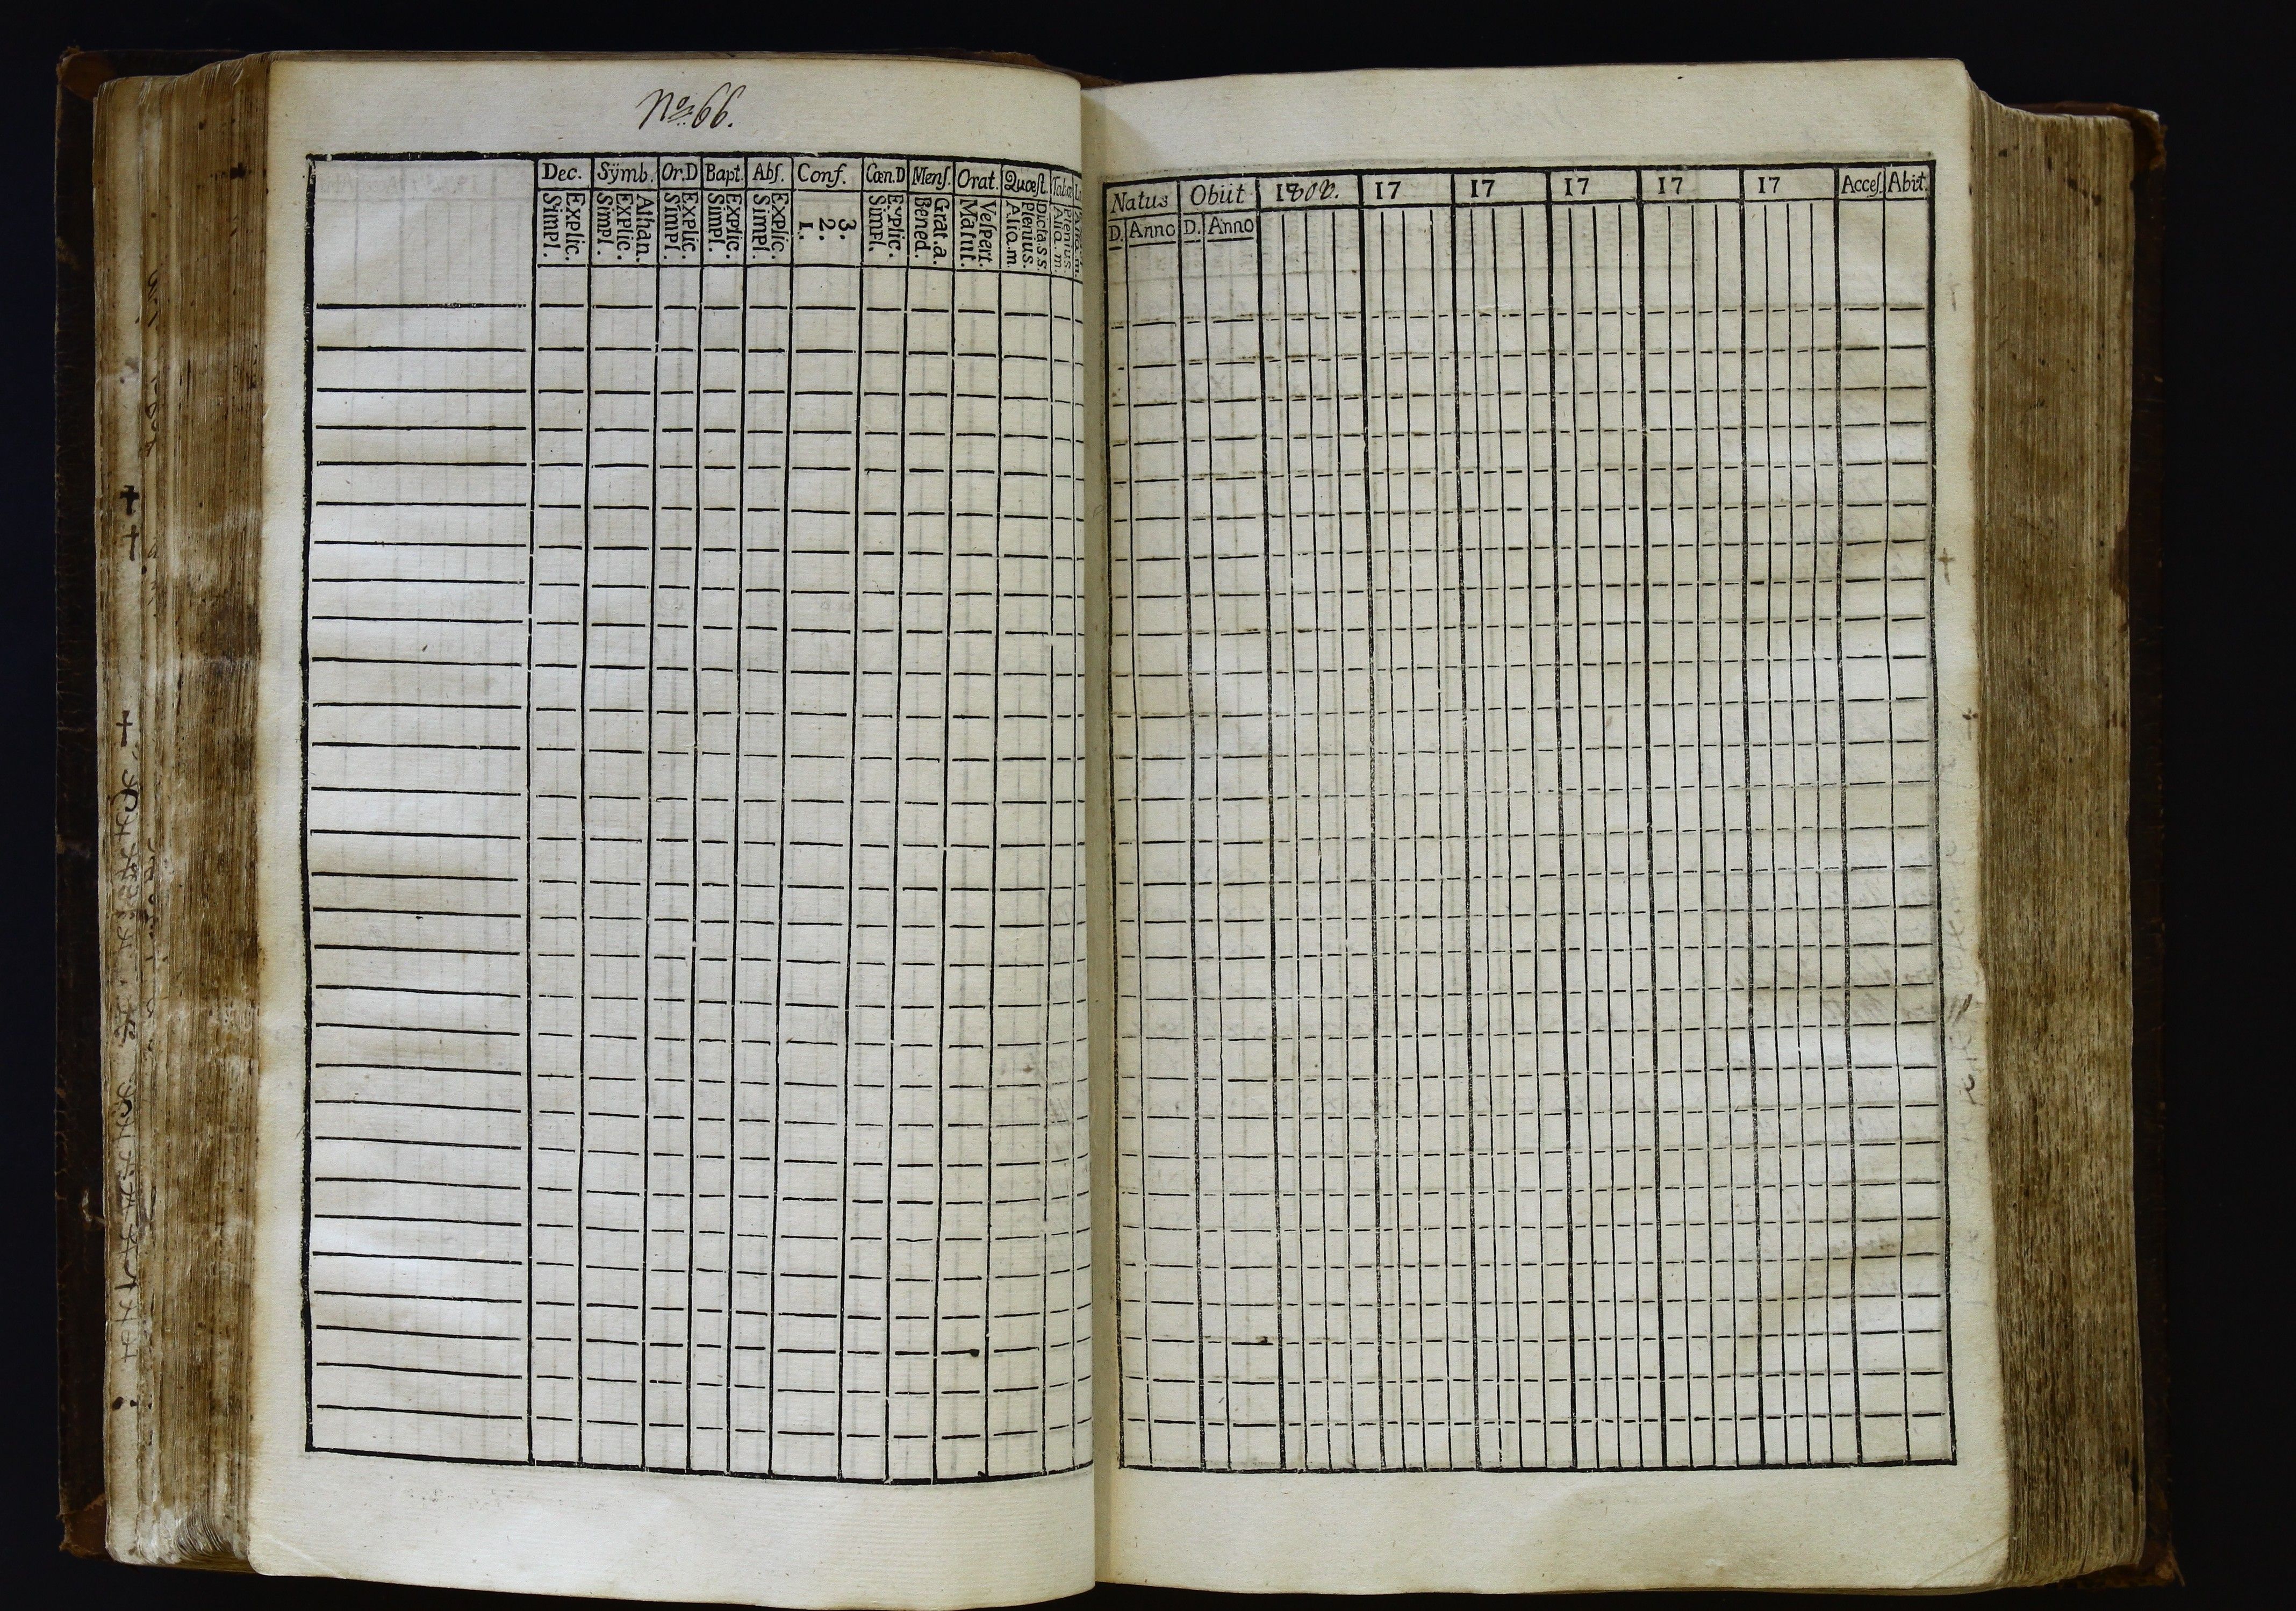 No 66.
Dec. Sÿmb. Or.D Bapt. Abſ. Conf. Cœn.D Menſ. Orat. Quœſt.
Explic. Athan. Explic. Explic. Explic. 3. Explic. Grat. a. Veſpert. Dicta.s.s. Plenius.
Simpl. Explic. Simpl. Simpl. Simpl. 2. Simpl. Bened. Matut. Plenius. Alia.m.
Simpl. 1. Alia.m.
Natus Obiit 1800. 17 17 17 17 17 Acceſ. Abit.
D. Anno D. Anno